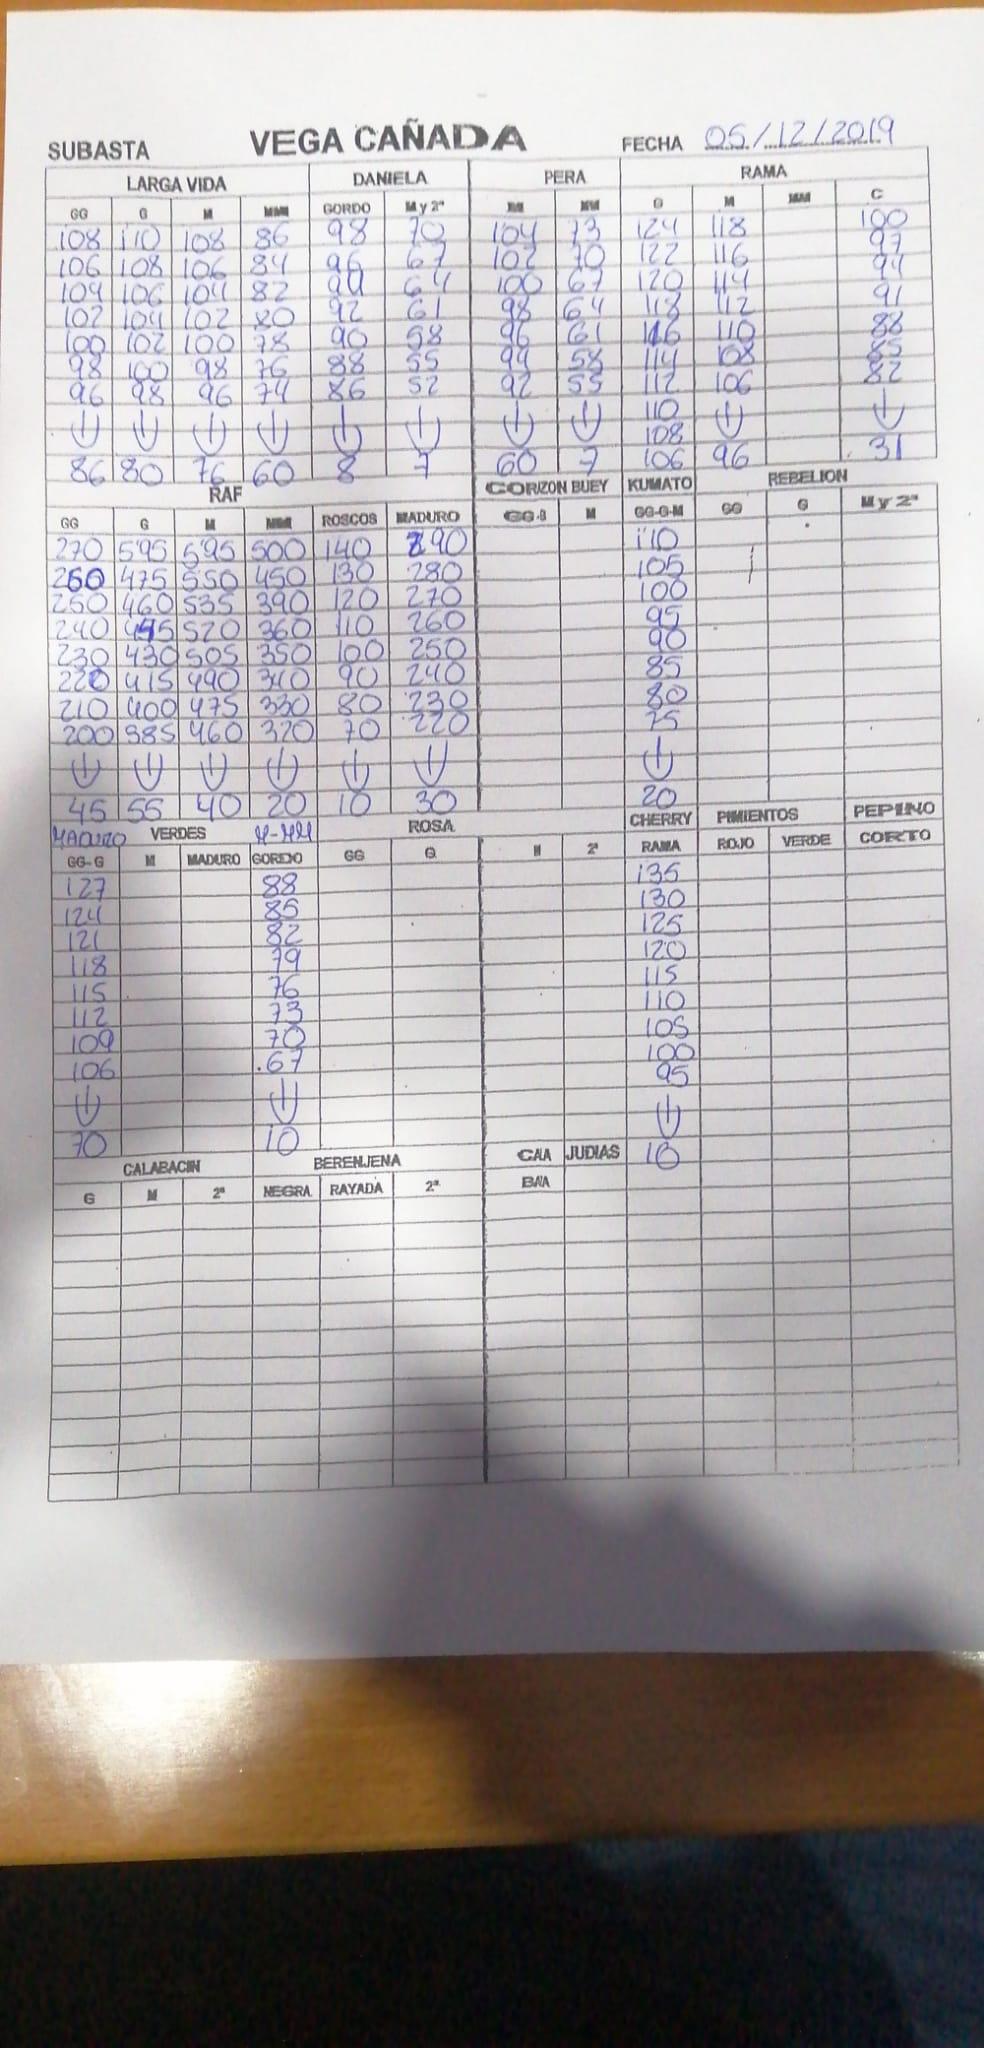 SUBASTA VEGA CAÑADA FECHA 05/12/2019
LARGA VIDA DANIELA PERA RAMA
GG G M MM GORDO M y 2ª M MM G M MM C
108 110 108 86 98 70 104 73 124 118 100
106 108 106 84 96 67 102 70 122 116 97
104 106 104 82 94 64 100 67 120 114 94
102 104 102 80 92 61 98 64 118 112 91
100 102 100 78 90 58 96 61 116 110 88
98 100 98 76 88 55 94 58 114 108 85
96 98 96 74 86 52 92 55 112 106 82
110
108
86 80 76 60 8 7 60 7 106 96 31
RAF CORIZON BUEY KUMATO REBELION
GG G M MM ROSCOS MADURO GG-G M GG-G-M GG G M y 2ª
270 595 595 500 140 290 110
260 475 550 450 130 280 105
250 460 535 390 120 270 100
240 445 520 360 110 260 95
230 430 505 350 100 250 90
220 415 490 340 90 240 85
210 400 475 330 80 230 80
200 385 460 320 70 220 75
45 55 40 20 10 30 20
MADURO VERDES M-MM ROSA CHERRY PIMIENTOS PEPINO
GG-G M MADURO GORDO GG G M 2ª RAMA ROJO VERDE CORTO
127 88 135
124 85 130
121 82 125
118 79 120
115 76 115
112 73 110
109 70 105
106 67 100
95
70 10 10
CALABACIN BERENJENA CAA JUDIAS
G M 2ª NEGRA RAYADA 2ª BAA